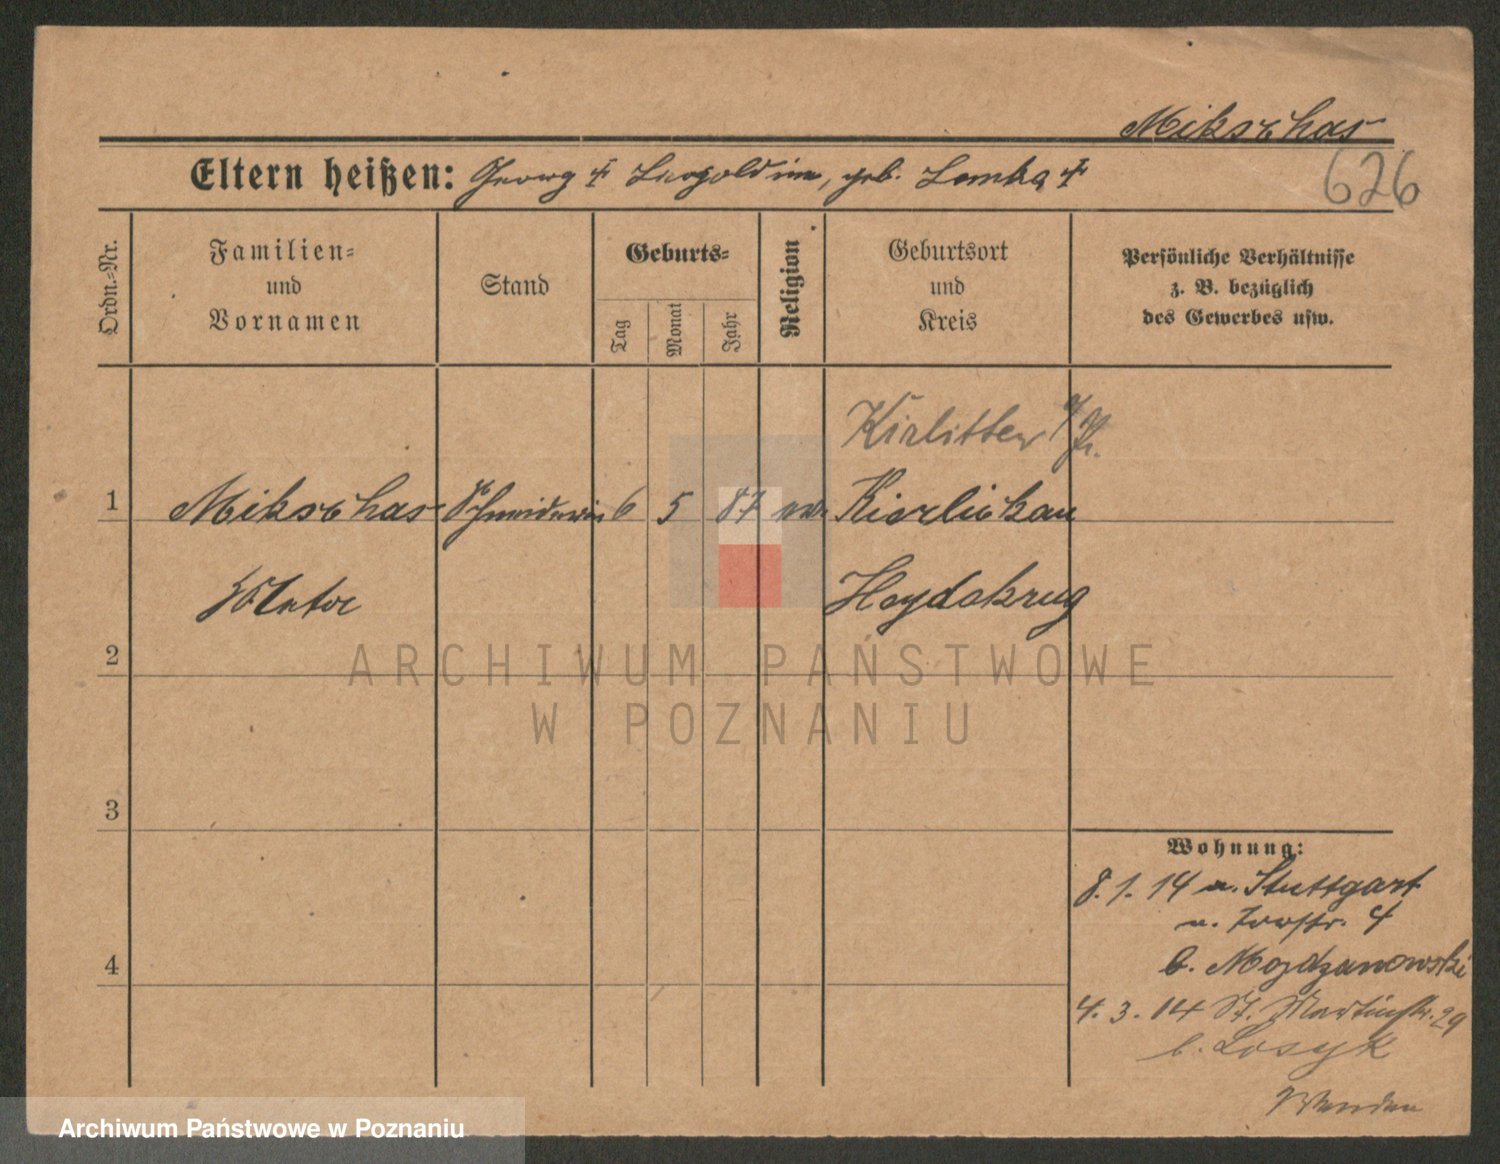 Mikschas
626
Eltern heißen: Georg † Leopoldine, geb. Lemke †
Ordn.-Nr.
Familien-
und
Vornamen
Stand
Geburts-
Tag
Monat
Jahr
Religion
Geburtsort
und
Kreis
Persönliche Verhältnisse
z. B. bezüglich
des Gewerbes usw.
1
Mikschas Schneiderin 6 5 87 ev.
Kirlitten
Kierlickau
Heydekrug
2
3
4
Wohnung:
8. 1. 14 a. Stuttgart
4
b. Mojdzanowski
4. 3. 14 St. Martinstr. 29
b. Losyk
Wenden
ARCHIWUM PAŃSTWOWE
W POZNANIU
Archiwum Państwowe w Poznaniu